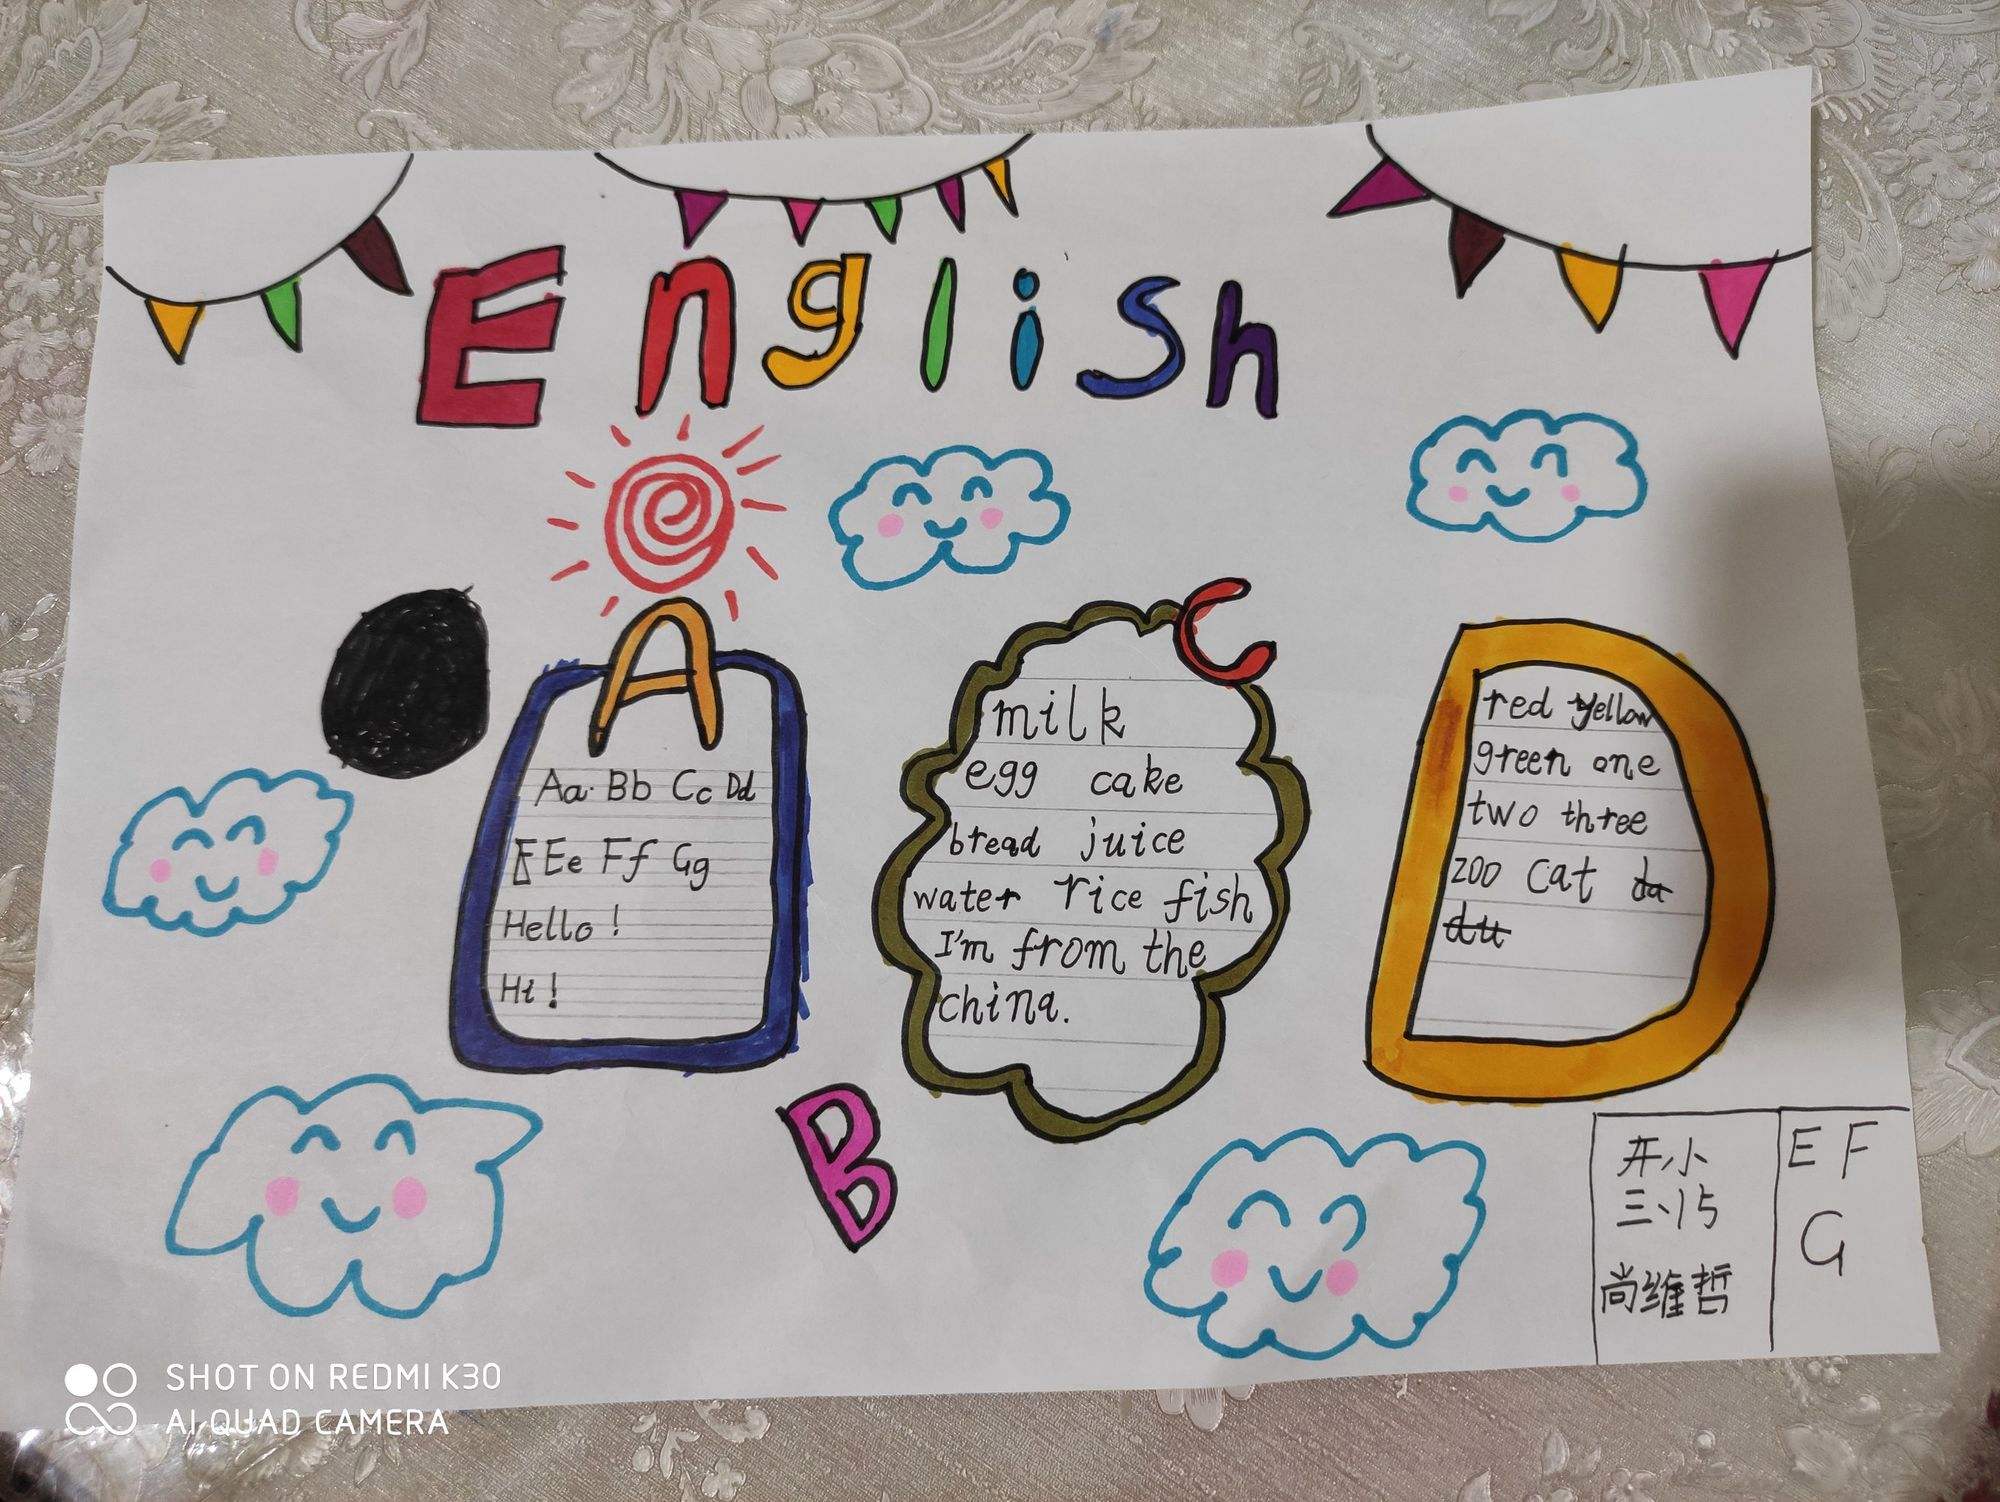 English
A
Aa Bb Cc Dd
Ee Ff Gg
Hello !
Hi !
B
C
milk
egg cake
bread juice
water rice fish
I'm from the
china.
red yellow
green one
two three
zoo cat da
du
开小
三、15
尚维哲
E F
G
SHOT ON REDMI K30
AI QUAD CAMERA